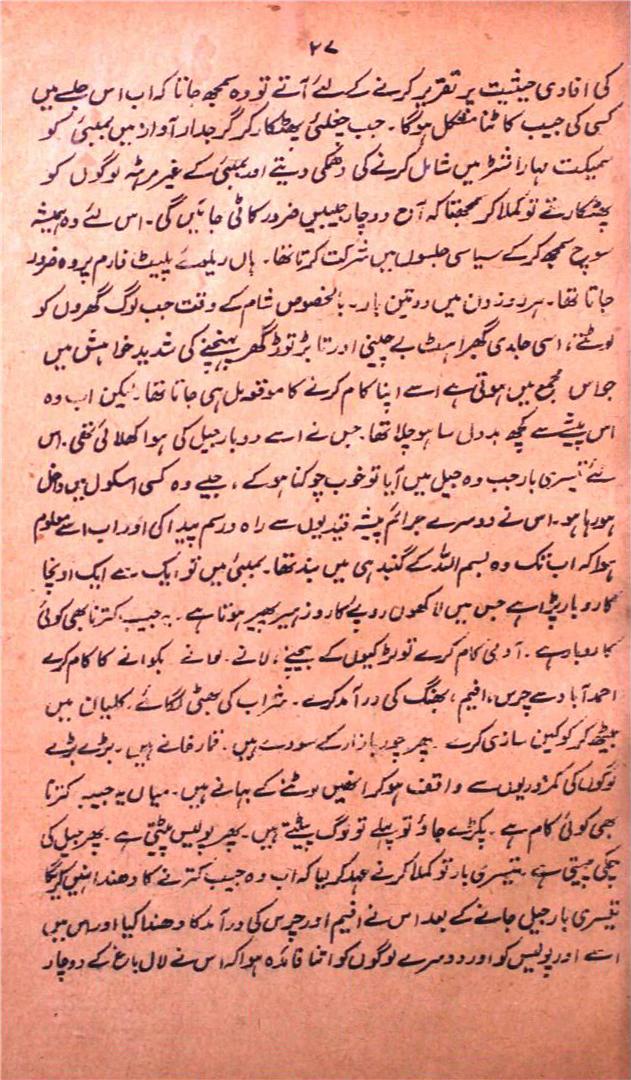 ۲۷
کی افادی حیثیت پر تقریر کرنے کے لئے آتے تو وہ سمجھ جاتا کہ اب اس جلسے میں
کسی کی جیب کاٹنا مشکل ہوگا۔ جب چغلئی پھٹکار کر گرجدار آواز میں بمبئی کو
سمیکت مہاراشٹر میں شامل کرنے کی دھمکی دیتے اور بمبئی کے غیر مرہٹہ لوگوں کو
پھٹکارتے تو کملا کر سمجھتا کہ آج دو چار جیبیں ضرور کاٹی جائیں گی۔ اس لئے وہ ہمیشہ
سوچ سمجھ کر کے سیاسی جلسوں میں شرکت کرتا تھا۔ ہاں ریلوے پلیٹ فارم پر وہ ضرور
جاتا تھا۔ ہر روز دن میں دو تین بار۔ بالخصوص شام کے وقت جب لوگ گھروں کو
لوٹتے، اسی جلدی گھبراہٹ بے چینی اور تابڑ توڑ گھر پہنچنے کی شدید خواہش میں
جو اس مجمع میں ہوتی ہے اسے اپنا کام کرنے کا موقع مل ہی جاتا تھا۔ لیکن اب وہ
اس پیشے سے کچھ بد دل سا ہو چلا تھا۔ جس نے اسے دو بار جیل کی ہوا کھلائی تھی۔ اس
لئے تیسری بار جب وہ جیل میں آیا تو خوب چوکنا ہو کے، جیسے وہ کسی اسکول میں داخل
ہو رہا ہو۔ اس نے دوسرے جرائم پیشہ قیدیوں سے راہ و رسم پیدا کی اور اب اسے معلوم
ہوا کہ اب تک وہ بسم اللہ کے گنبد ہی میں بند تھا۔ بمبئی میں تو ایک سے ایک اونچا
کاروبار پڑا ہے جس میں لاکھوں روپے کا روز ہیر پھیر ہوتا ہے۔ یہ جیب کترنا بھی کوئی
کاروبار ہے۔ آدمی کام کرے تو لڑکیوں کے بیچنے، لانے۔ لوانے بکوانے کا کام کرے
احمد آباد سے چرس، افیم، بھنگ کی درآمد کرے۔ شراب کی بھٹی لگائے۔ کلیان میں
بیٹھ کر کوکین سازی کرے۔ پھر چور بازار کے سودے ہیں۔ قمار خانے ہیں۔ بڑے بڑے
لوگوں کی کمزوریوں سے واقف ہو کر انھیں لوٹنے کے بہانے ہیں۔ میاں یہ جیب کترنا
بھی کوئی کام ہے۔ پکڑے جاؤ تو پہلے تو لوگ پیٹتے ہیں۔ پھر پولیس پیٹتی ہے۔ پھر جیل کی
چکی پیستی ہے۔ تیسری بار تو کملا کر نے عہد کر لیا کہ اب وہ جیب کترنے کا دھندا نہیں کریگا
تیسری بار جیل جانے کے بعد اس نے افیم اور چرس کی درآمد کا دھندا کیا اور اس میں
اسے اور پولیس کو اور دوسرے لوگوں کو اتنا فائدہ ہوا کہ اس نے لال باغ کے دو چار